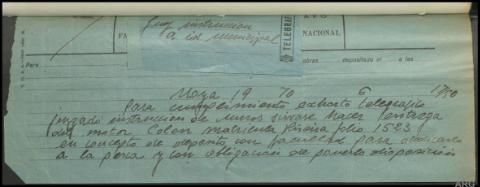 Juez instruccion
a id municipal
TELEGRAF
NACIONAL
Para
depositado el
a las
Noya 19 70 6 1750
Para cumplimiento exhorto telegrafico
juzgado instruccion de Muros sirvase hacer entrega
del motor Colon matricula folio 1523
en concepto de deposito con facultad para dedicarlo
a la pesca y con obligacion de ponerlo disposición
ARG